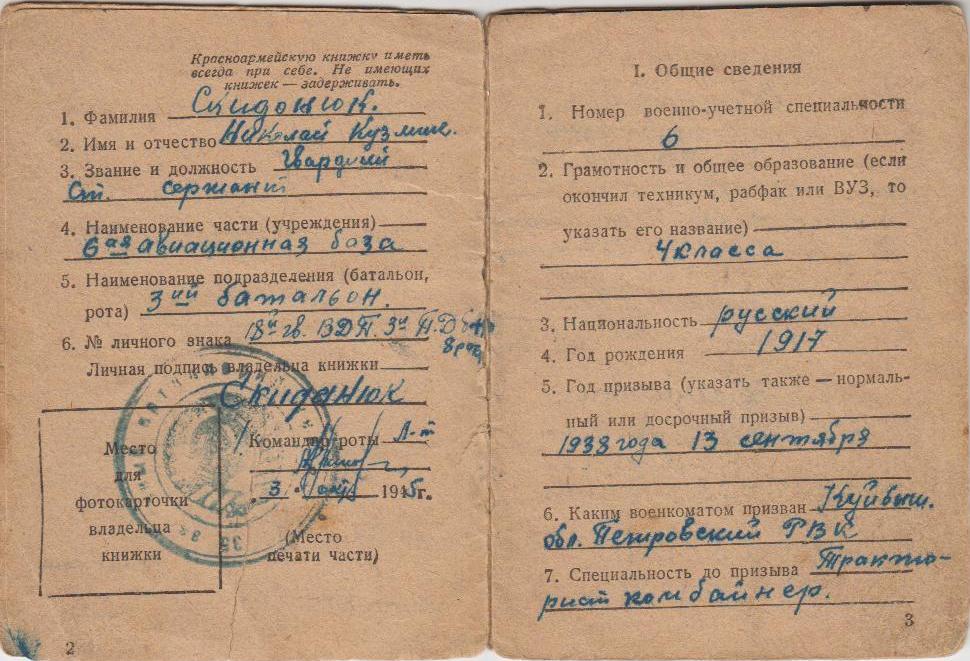 Красноармейскую книжку иметь
всегда при себе. Не имеющих
книжек — задерживать.
1. Фамилия Скиданюк.
2. Имя и отчество Николай Кузмич.
3. Звание и должность Гвардии
Ст. сержант
4. Наименование части (учреждения)
6ая авиационная база
5. Наименование подразделения (батальон,
рота) 3ий батальон.
6. № личного знака 18й гв. ВДП. 3й П.Д.
8 рота
Личная подпись владельца книжки
Скиданюк
Место
для
фотокарточки
владельца
книжки
Командир роты Л-т
3. 1945г.
(Место
печати части)
35
2
I. Общие сведения
1. Номер военно-учетной специальности
6
2. Грамотность и общее образование (если
окончил техникум, рабфак или ВУЗ, то
указать его название)
4 класса
3. Национальность русский
4. Год рождения 1917
5. Год призыва (указать также — нормаль-
ный или досрочный призыв)
1938 года 13 сентября
6. Каким военкоматом призван Куйбыш.
обл. Петровский РВК
7. Специальность до призыва Тракто-
рист комбайнер.
3